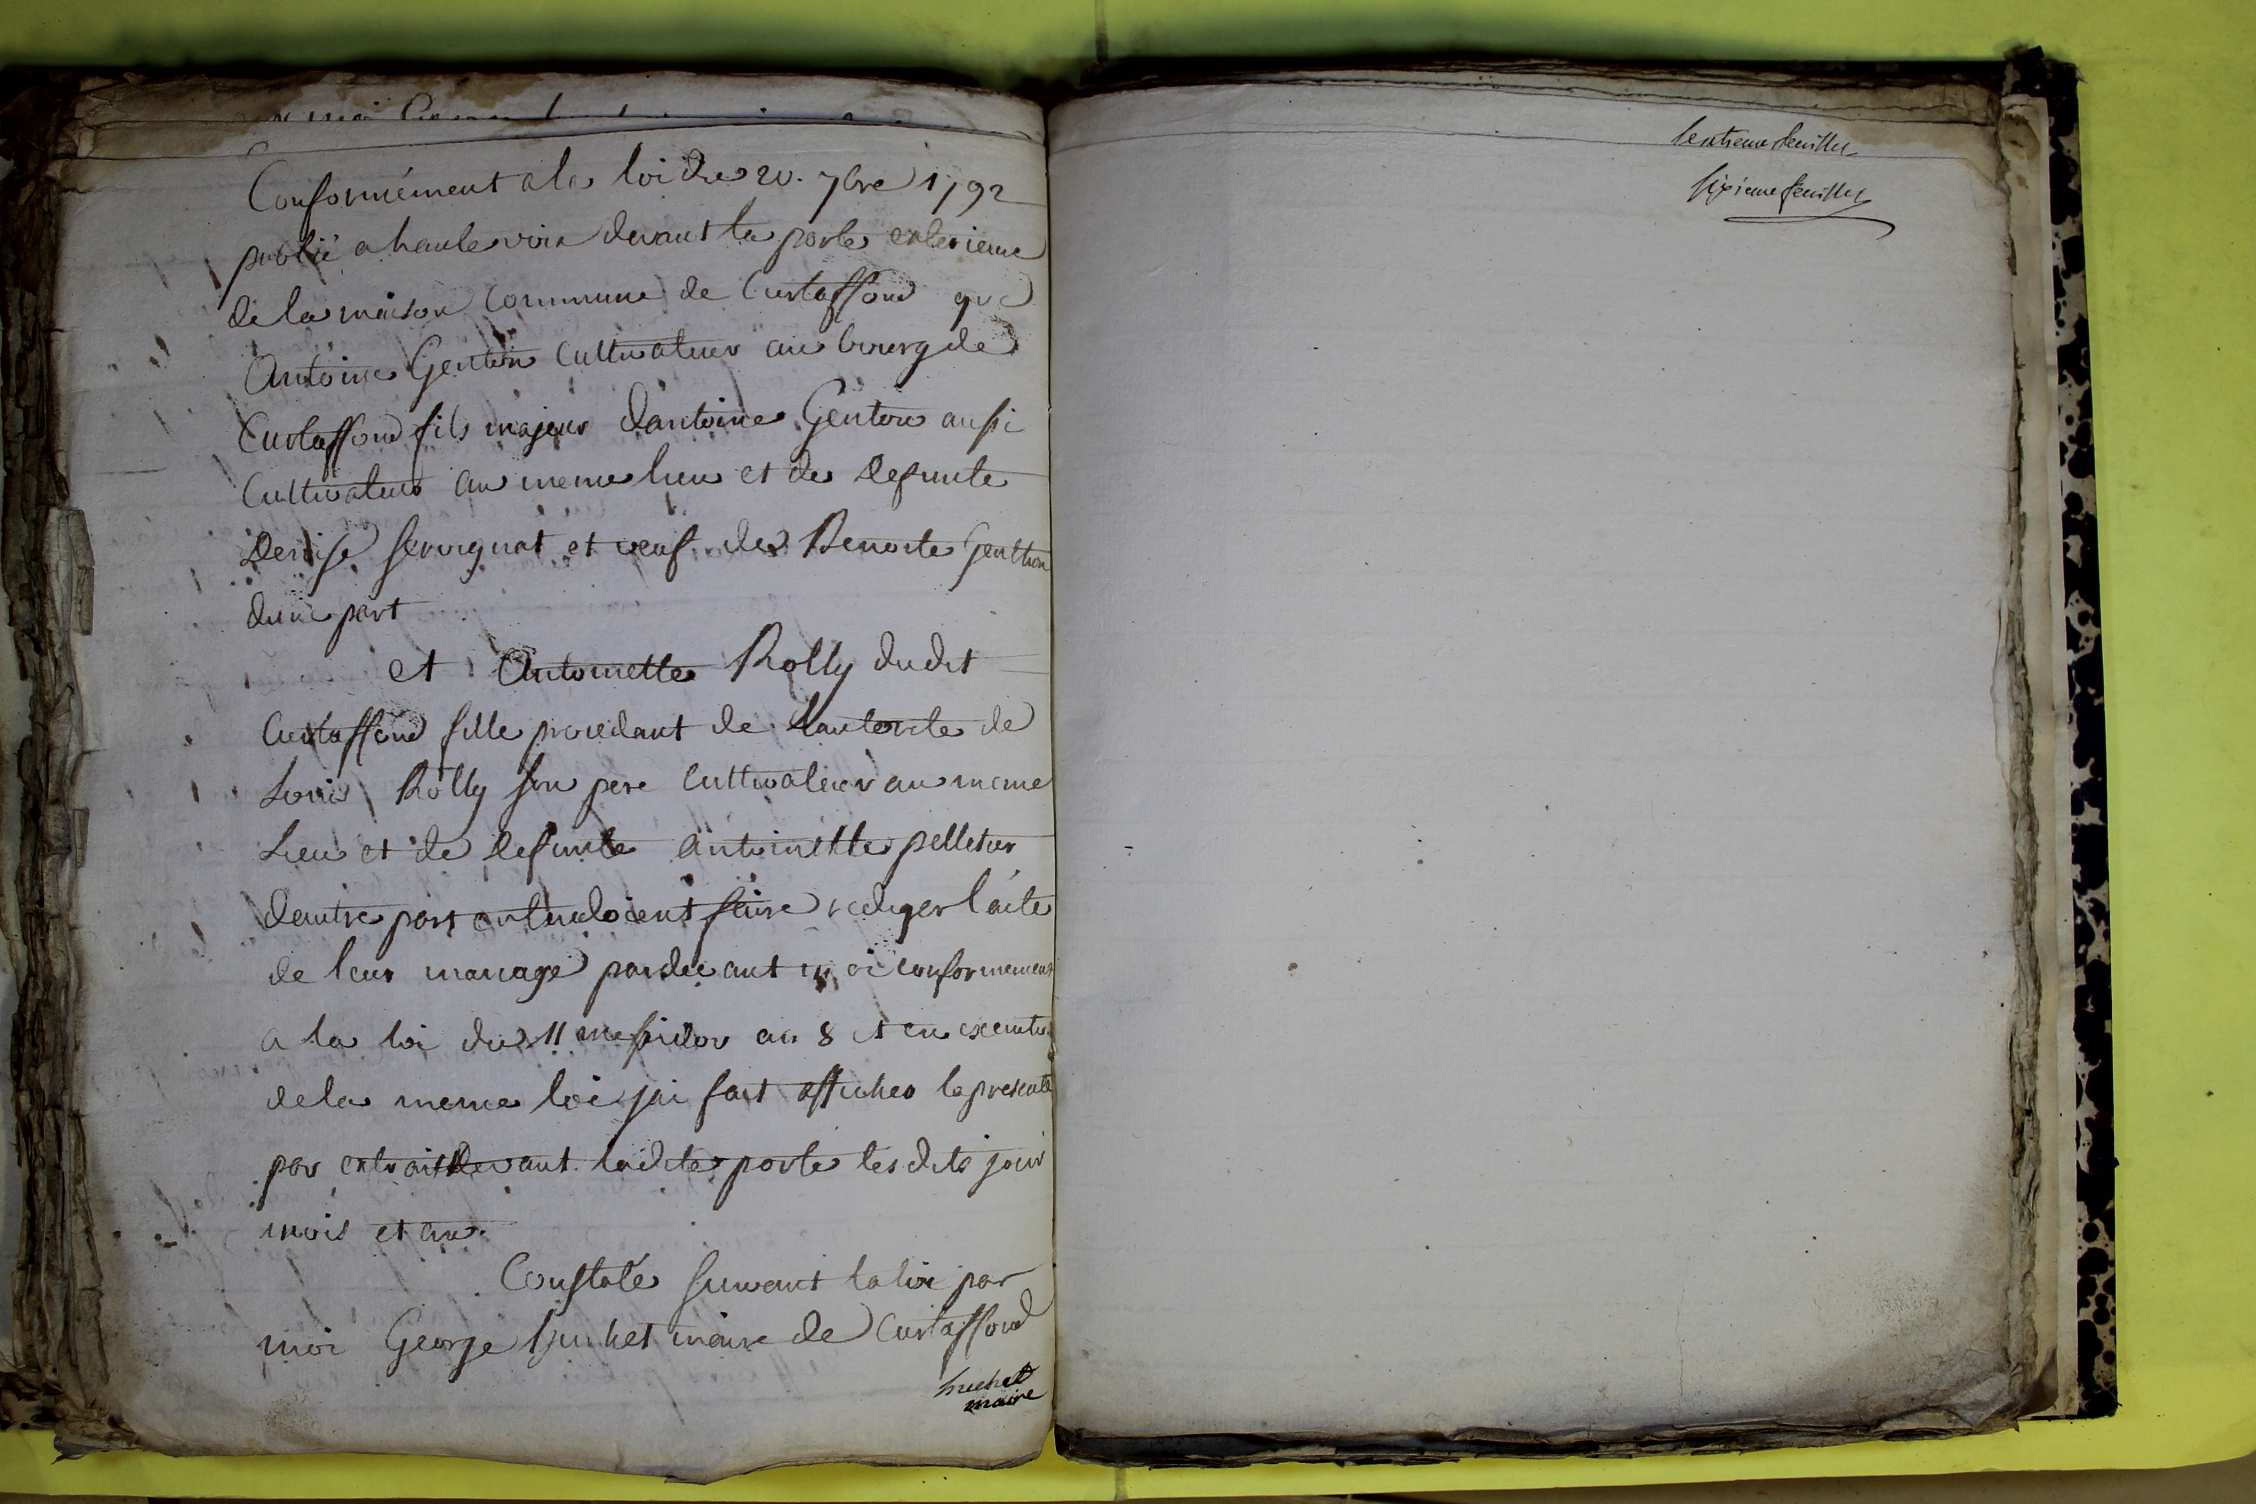 Conformément a la loi du 20. 7bre 1792
publié a haute voix devant la porte exterieure
de la maison commune de Curtaffond que
Antoine Genton cultivateur au bourg de
Curtaffond fils majeur dantoine Genton aussi
cultivateur au meme lieu et de defunte
Denise servignat et veuf de Benoite Gentton
dune part
et Antoinette Rolly dudit
Curtaffond fille procedant de lautorite de
Louis Rolly son pere cultivateur au meme
Lieu et de defunte antoinette pelletier
dautre part entendoient faire rediger l'acte
de leur mariage pardevant moi conformement
a la loi du 11 messidor an 8 et en
de la meme loi jai fait afficher le present
par extrait devant ladite porte lesdits jour
mois et an.
Constaté suivant la loi par
moi George huchet maire de Curtaffond
huchet
maire
feuillet
sixieme feuillet